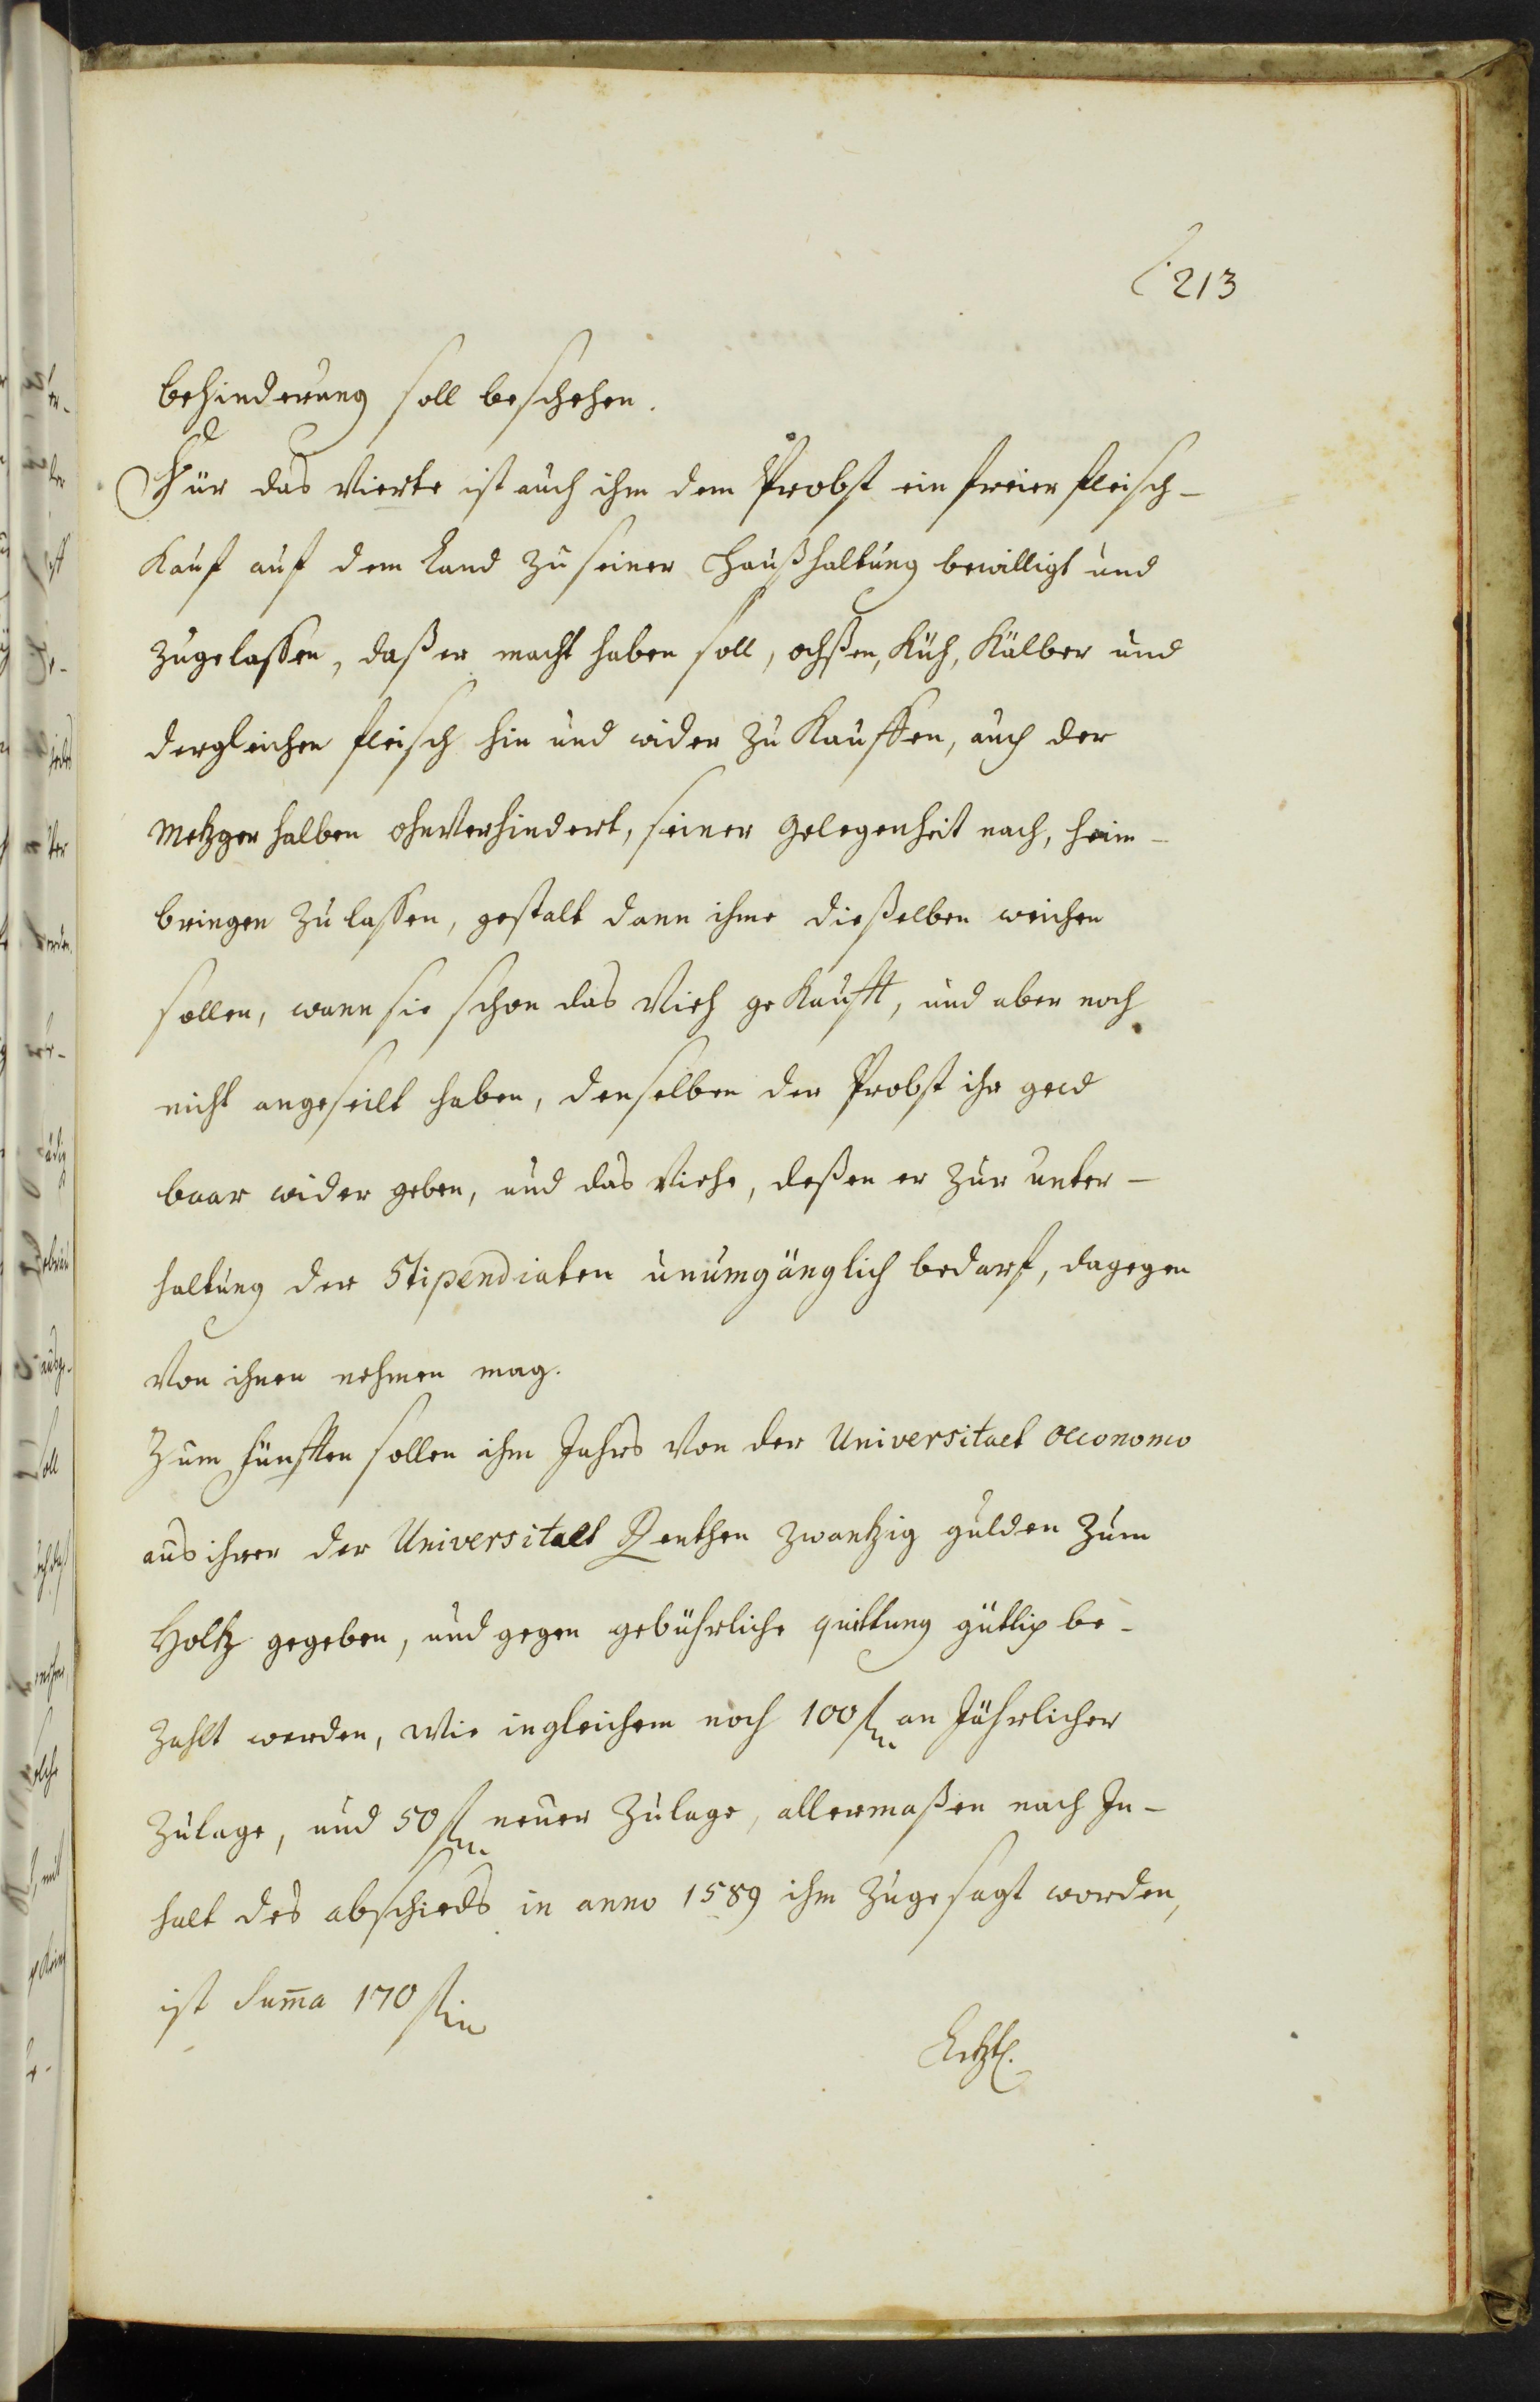 213
behinderung soll beschehen.
Für das Vierte ist auch ihm dem Probst ein freier fleisch-
Kauf auf dem Land zu seiner Haußhaltung bewilligt und
zugelaßen, daß er macht haben soll, ochßen, Küh, Kälber und
dergleichen fleisch hin und wider zu Kauffen, auch der
Metzger halben ohnverhindert, seiner gelegenheit nach, heim-
bringen zu laßen, gestalt dann ihme dießelben weichen
sollen, wann sie schon das Vieh gekaufft, und aber noch
nicht angeseilt haben, denselben der Probst ihr geld
baar wider geben, und das Viehe, deßen er zur unter-
haltung der Stipendiaten unumgänglich bedarf, dagegen
Von ihnen nehmen mag.
Zum fünfften sollen ihm Jahrs von der Universitaet oeconomo
aus ihrer der Universitaet Renthen zwantzig gulden zum
Holtz gegeben, und gegen gebührliche quittung gütlich be-
zahlt werden, Wie ingleichem noch 100 fl an Jährlicher
Zulage, und 50 fl neuer Zulage, allermaßen nach In-
halt des abschieds in anno 1589 ihm zugesagt worden,
ist Sum̄a 170 fl
Letztl.